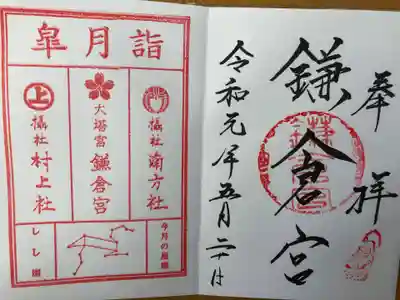 奉拝
鎌倉宮
令和元年五月二十
皐月詣
摂社 南方社
大塔宮 鎌倉宮
上
摂社 村上社
今月の星座
しし座